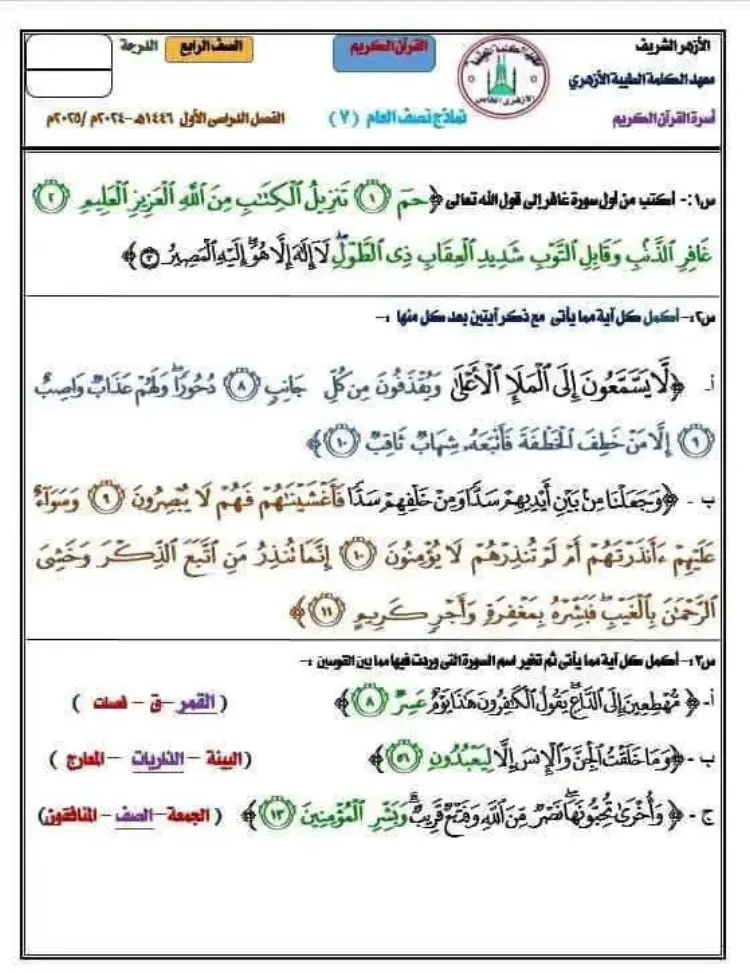 الأزهر الشريف
معهد الكلمة الطيبة الأزهري
أسرة القرآن الكريم
القرآن الكريم
نماذج نصف العام (٧)
الصف الرابع
الدرجة
الفصل الدراسى الأول ١٤٤٦هـ -٢٠٢٤م /٢٠٢٥م
س١:- أكتب من أول سورة غافر إلى قول الله تعالى ﴿حمٓ ١ تَنزِيلُ ٱلۡكِتَٰبِ مِنَ ٱللَّهِ ٱلۡعَزِيزِ ٱلۡعَلِيمِ ٢
غَافِرِ ٱلذَّنۢبِ وَقَابِلِ ٱلتَّوۡبِ شَدِيدِ ٱلۡعِقَابِ ذِي ٱلطَّوۡلِۖ لَآ إِلَٰهَ إِلَّا هُوَۖ إِلَيۡهِ ٱلۡمَصِيرُ ٣﴾
س٢:- أكمل كل آية مما يأتى مع ذكر آيتين بعد كل منها :-
أ- ﴿لَّا يَسَّمَّعُونَ إِلَى ٱلۡمَلَإِ ٱلۡأَعۡلَىٰ وَيُقۡذَفُونَ مِن كُلِّ جَانِبٖ ٨ دُحُورٗاۖ وَلَهُمۡ عَذَابٞ وَاصِبٌ
٩ إِلَّا مَنۡ خَطِفَ ٱلۡخَطۡفَةَ فَأَتۡبَعَهُۥ شِهَابٞ ثَاقِبٞ ١٠﴾
ب - ﴿وَجَعَلۡنَا مِنۢ بَيۡنِ أَيۡدِيهِمۡ سَدّٗا وَمِنۡ خَلۡفِهِمۡ سَدّٗا فَأَغۡشَيۡنَٰهُمۡ فَهُمۡ لَا يُبۡصِرُونَ ٩ وَسَوَآءٌ
عَلَيۡهِمۡ ءَأَنذَرۡتَهُمۡ أَمۡ لَمۡ تُنذِرۡهُمۡ لَا يُؤۡمِنُونَ ١٠ إِنَّمَا تُنذِرُ مَنِ ٱتَّبَعَ ٱلذِّكۡرَ وَخَشِيَ
ٱلرَّحۡمَٰنَ بِٱلۡغَيۡبِۖ فَبَشِّرۡهُ بِمَغۡفِرَةٖ وَأَجۡرٖ كَرِيمٍ ١١﴾
س٣:- أكمل كل آية مما يأتى ثم تخير اسم السورة التى وردت فيها مما بين القوسين :-
أ-﴿ مُّهۡطِعِينَ إِلَى ٱلدَّاعِۖ يَقُولُ ٱلۡكَٰفِرُونَ هَٰذَا يَوۡمٌ عَسِرٞ ٨﴾ (القمر -ق - فصلت )
ب -﴿وَمَا خَلَقۡتُ ٱلۡجِنَّ وَٱلۡإِنسَ إِلَّا لِيَعۡبُدُونِ ٥٦﴾ (البينة - الذاريات - المعارج )
ج -﴿ وَأُخۡرَىٰ تُحِبُّونَهَاۖ نَصۡرٞ مِّنَ ٱللَّهِ وَفَتۡحٞ قَرِيبٞۗ وَبَشِّرِ ٱلۡمُؤۡمِنِينَ ١٣﴾ (الجمعة- الصف - المنافقون)